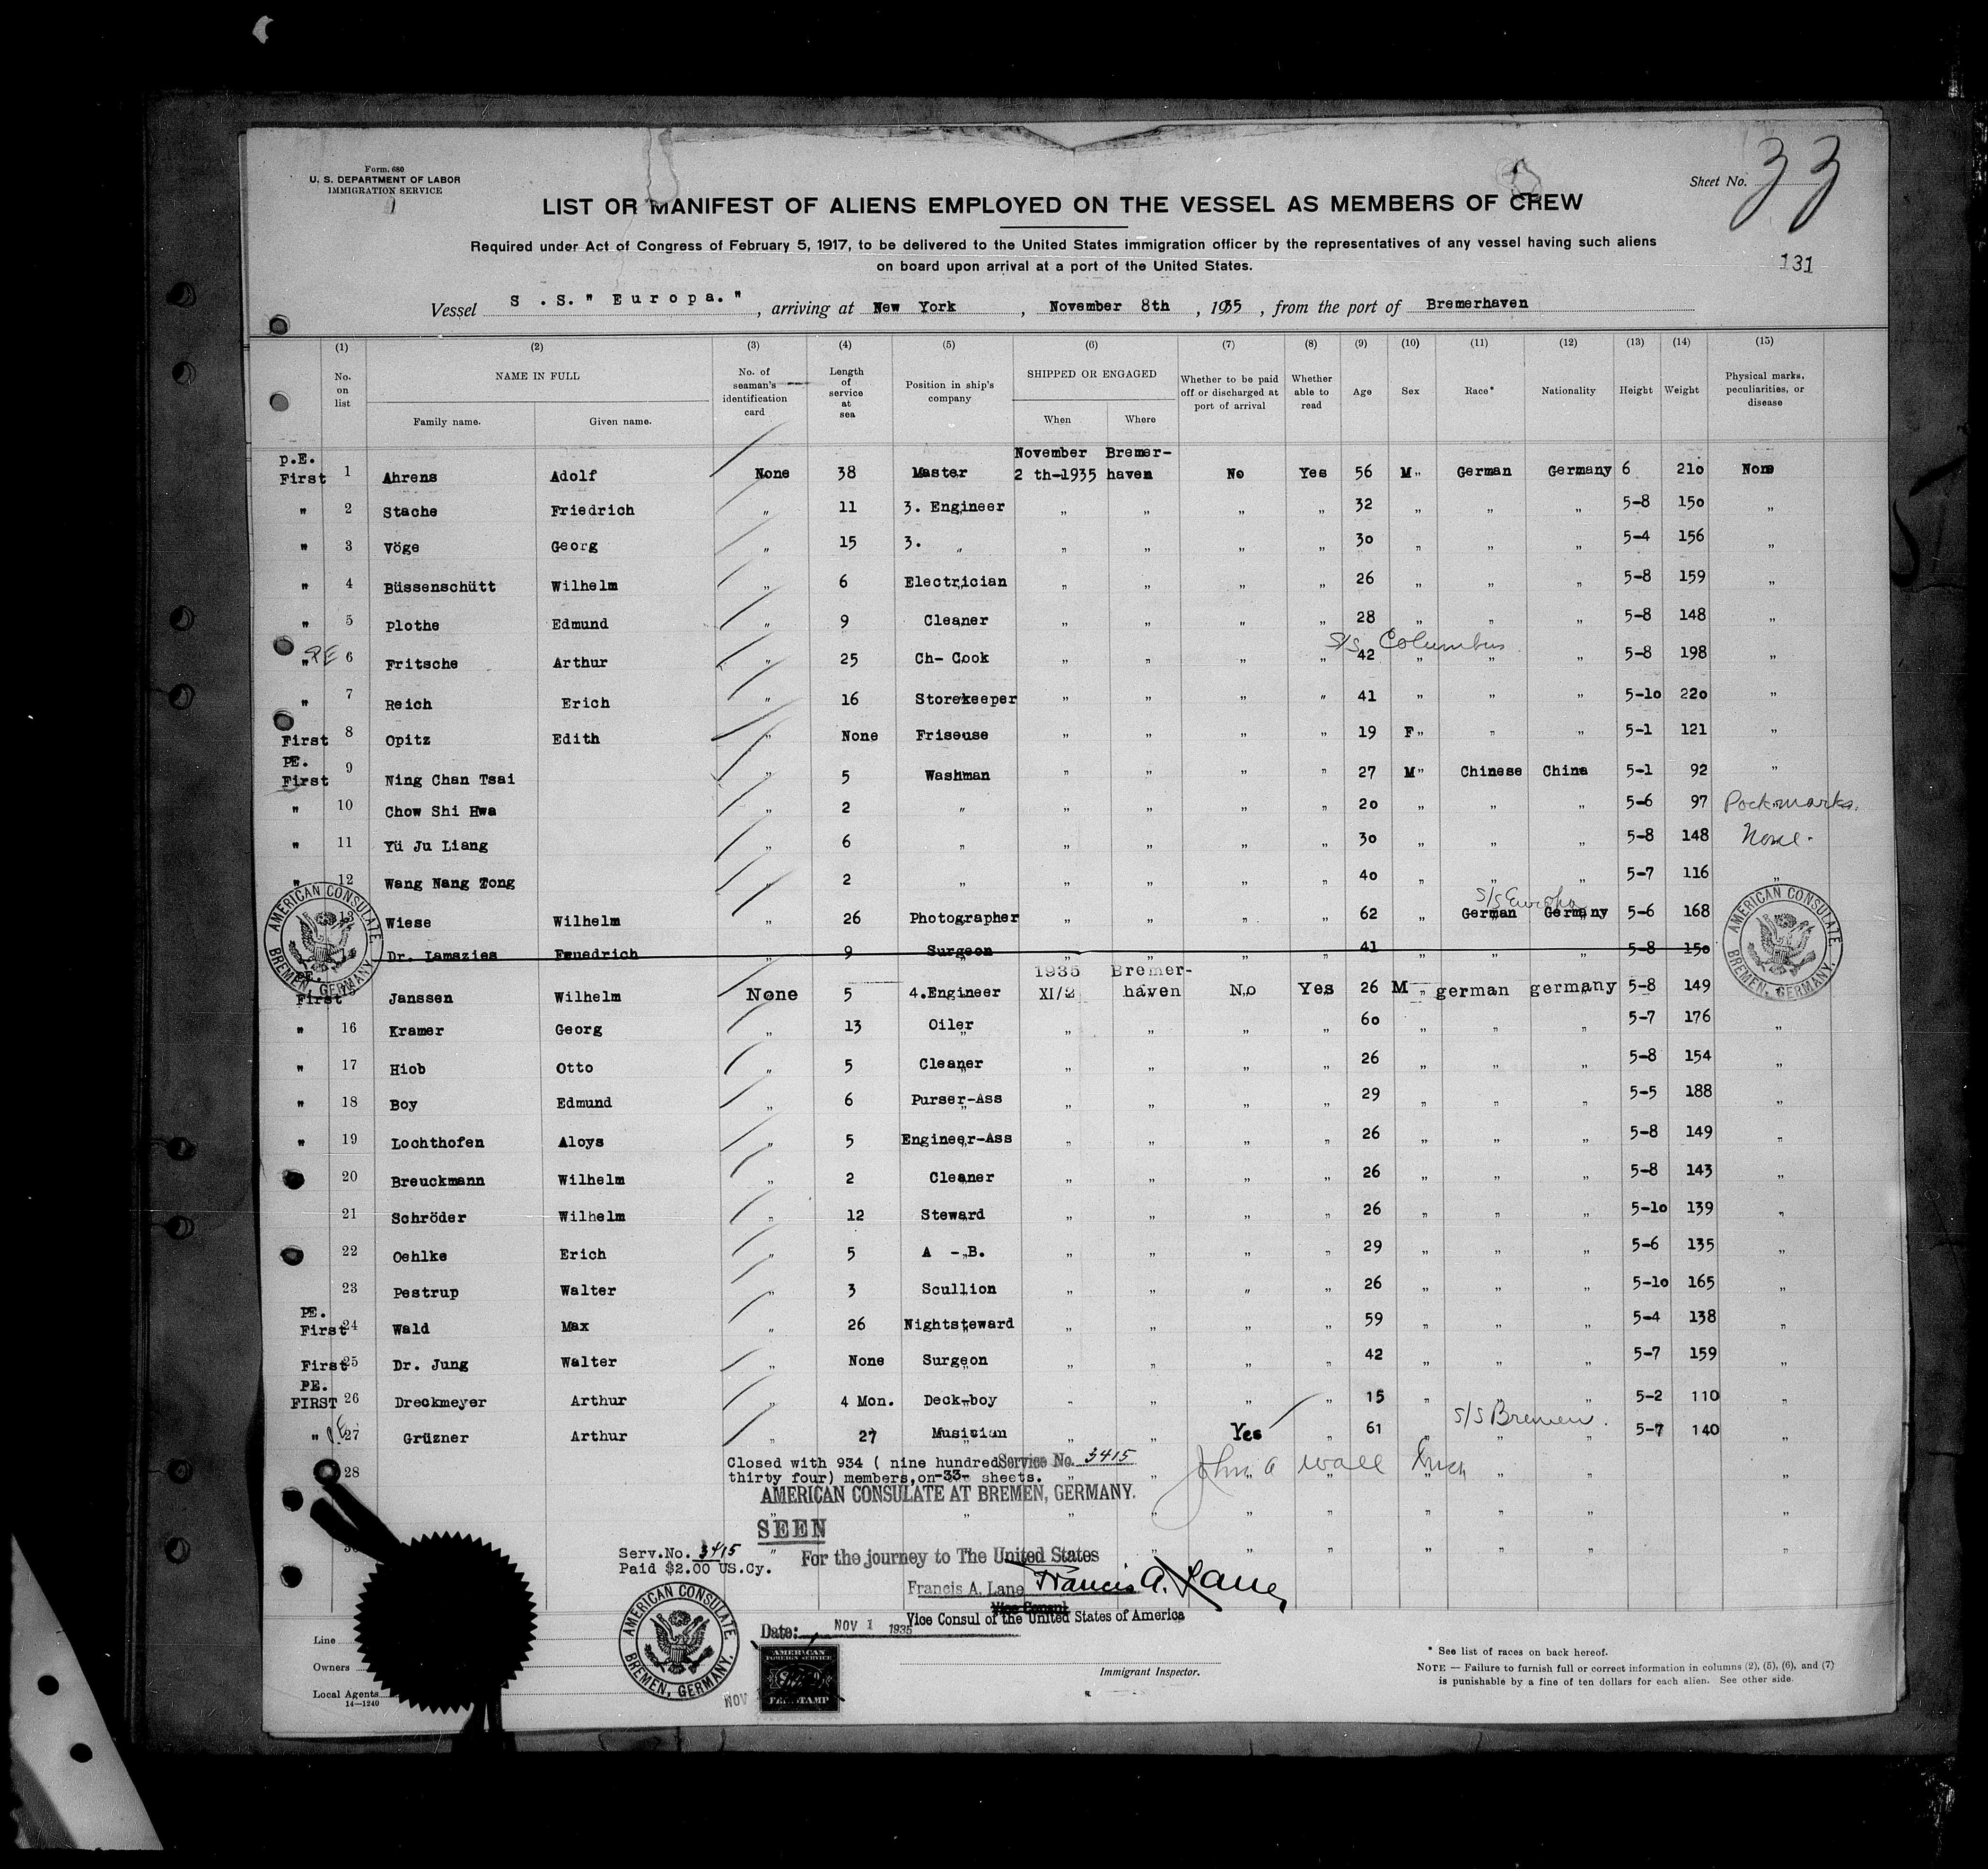 Form 680
U. S. DEPARTMENT OF LABOR
IMMIGRATION SERVICE
Sheet No. 33
LIST OR MANIFEST OF ALIENS EMPLOYED ON THE VESSEL AS MEMBERS OF CREW
Required under Act of Congress of February 5, 1917, to be delivered to the United States immigration officer by the representatives of any vessel having such aliens
on board upon arrival at a port of the United States.
131
Vessel S .S." Europa." , arriving at New York , November 8th , 1935 , from the port of Bremerhaven
(1) (2) (3) (4) (5) (6) (7) (8) (9) (10) (11) (12) (13) (14) (15)
No. on list NAME IN FULL Family name. Given name. No. of seaman's identification card Length of service at sea Position in ship's company SHIPPED OR ENGAGED When Where Whether to be paid off or discharged at port of arrival Whether able to read Age Sex Race* Nationality Height Weight Physical marks, peculiarities, or disease
p.E. First 1 Ahrens Adolf None 38 Master November 2 th-1935 Bremer-haven No Yes 56 M„ German Germany 6 210 None
" 2 Stache Friedrich „ 11 3. Engineer „ „ „ „ 32 „ „ „ 5-8 150 „
" 3 Vöge Georg „ 15 3. „ „ „ „ „ 30 „ „ „ 5-4 156 „
" 4 Büssenschütt Wilhelm „ 6 Electrician „ „ „ „ 26 „ „ „ 5-8 159 „
" 5 Plothe Edmund „ 9 Cleaner „ „ „ „ 28 „ „ „ 5-8 148 „
S/s Columbus
" PE 6 Fritsche Arthur „ 25 Ch- Cook „ „ „ „ 42 „ „ „ 5-8 198 „
" 7 Reich Erich „ 16 Storekeeper „ „ „ „ 41 „ „ „ 5-10 220 „
First 8 Opitz Edith „ None Friseuse „ „ „ „ 19 F„ „ „ 5-1 121 „
PE. First 9 Ning Chan Tsai „ 5 Washman „ „ „ „ 27 M„ Chinese China 5-1 92 „
" 10 Chow Shi Hwa „ 2 „ „ „ „ „ 20 „ „ „ 5-6 97 Pockmarks.
" 11 Yü Ju Liang „ 6 „ „ „ „ „ 30 „ „ „ 5-8 148 None.
" 12 Wang Nang Tong „ 2 „ „ „ „ „ 40 „ „ „ 5-7 116 „
S/s Europa
13 Wiese Wilhelm „ 26 Photographer „ „ „ „ 62 „ German Germany 5-6 168
Dr. Lamszies „ 9 Surgeon „ „ „ „ 41 „ „ „ 5-8 150
First 15 Janssen Wilhelm None 5 4.Engineer 1935 XI/2 Bremer-haven No Yes 26 M „ german germany 5-8 149
" 16 Kramer Georg „ 13 Oiler „ „ „ „ 60 „ „ „ 5-7 176 „
" 17 Hiob Otto „ 5 Cleaner „ „ „ „ 26 „ „ „ 5-8 154 „
" 18 Boy Edmund „ 6 Purser-Ass „ „ „ „ 29 „ „ „ 5-5 188 „
" 19 Lochthofen Aloys „ 5 Engineer-Ass „ „ „ „ 26 „ „ „ 5-8 149 „
20 Breuckmann Wilhelm „ 2 Cleaner „ „ „ „ 26 „ „ „ 5-8 143 „
21 Schröder Wilhelm „ 12 Steward „ „ „ „ 26 „ „ „ 5-10 139 „
22 Oehlke Erich „ 5 A -„B. „ „ „ „ 29 „ „ „ 5-6 135 „
23 Pestrup Walter „ 3 Scullion „ „ „ „ 26 „ „ „ 5-10 165 „
PE. First 24 Wald Max „ 26 Nightsteward „ „ „ „ 59 „ „ „ 5-4 138 „
First 25 Dr. Jung Walter „ None Surgeon „ „ „ „ 42 „ „ „ 5-7 159 „
PE. FIRST 26 Dreckmeyer Arthur „ 4 Mon. Deck-boy „ „ „ „ 15 „ „ „ 5-2 110 „
S/S Bremen.
" PE 27 Grüzner Arthur „ 27 Musician „ „ Yes „ 61 „ „ „ 5-7 140 „
28 Closed with 934 ( nine hundred Service No. 3415
thirty four) members,on-33- sheets.
John A Wall
AMERICAN CONSULATE AT BREMEN, GERMANY.
SEEN
Serv.No. 3415
Paid $2.00 US.Cy.
For the journey to The United States
Francis A. Lane Francis A. Lane
Vice Consul
Vice Consul of the United States of America
Date: NOV 1 1935
AMERICAN CONSULATE
BREMEN, GERMANY.
AMERICAN CONSULATE
BREMEN, GERMANY.
AMERICAN CONSULATE
BREMEN, GERMANY.
AMERICAN FOREIGN SERVICE
FEE STAMP
NOV
Line
Owners
Local Agents
14—1240
Immigrant Inspector.
* See list of races on back hereof.
NOTE — Failure to furnish full or correct information in columns (2), (5), (6), and (7)
is punishable by a fine of ten dollars for each alien. See other side.